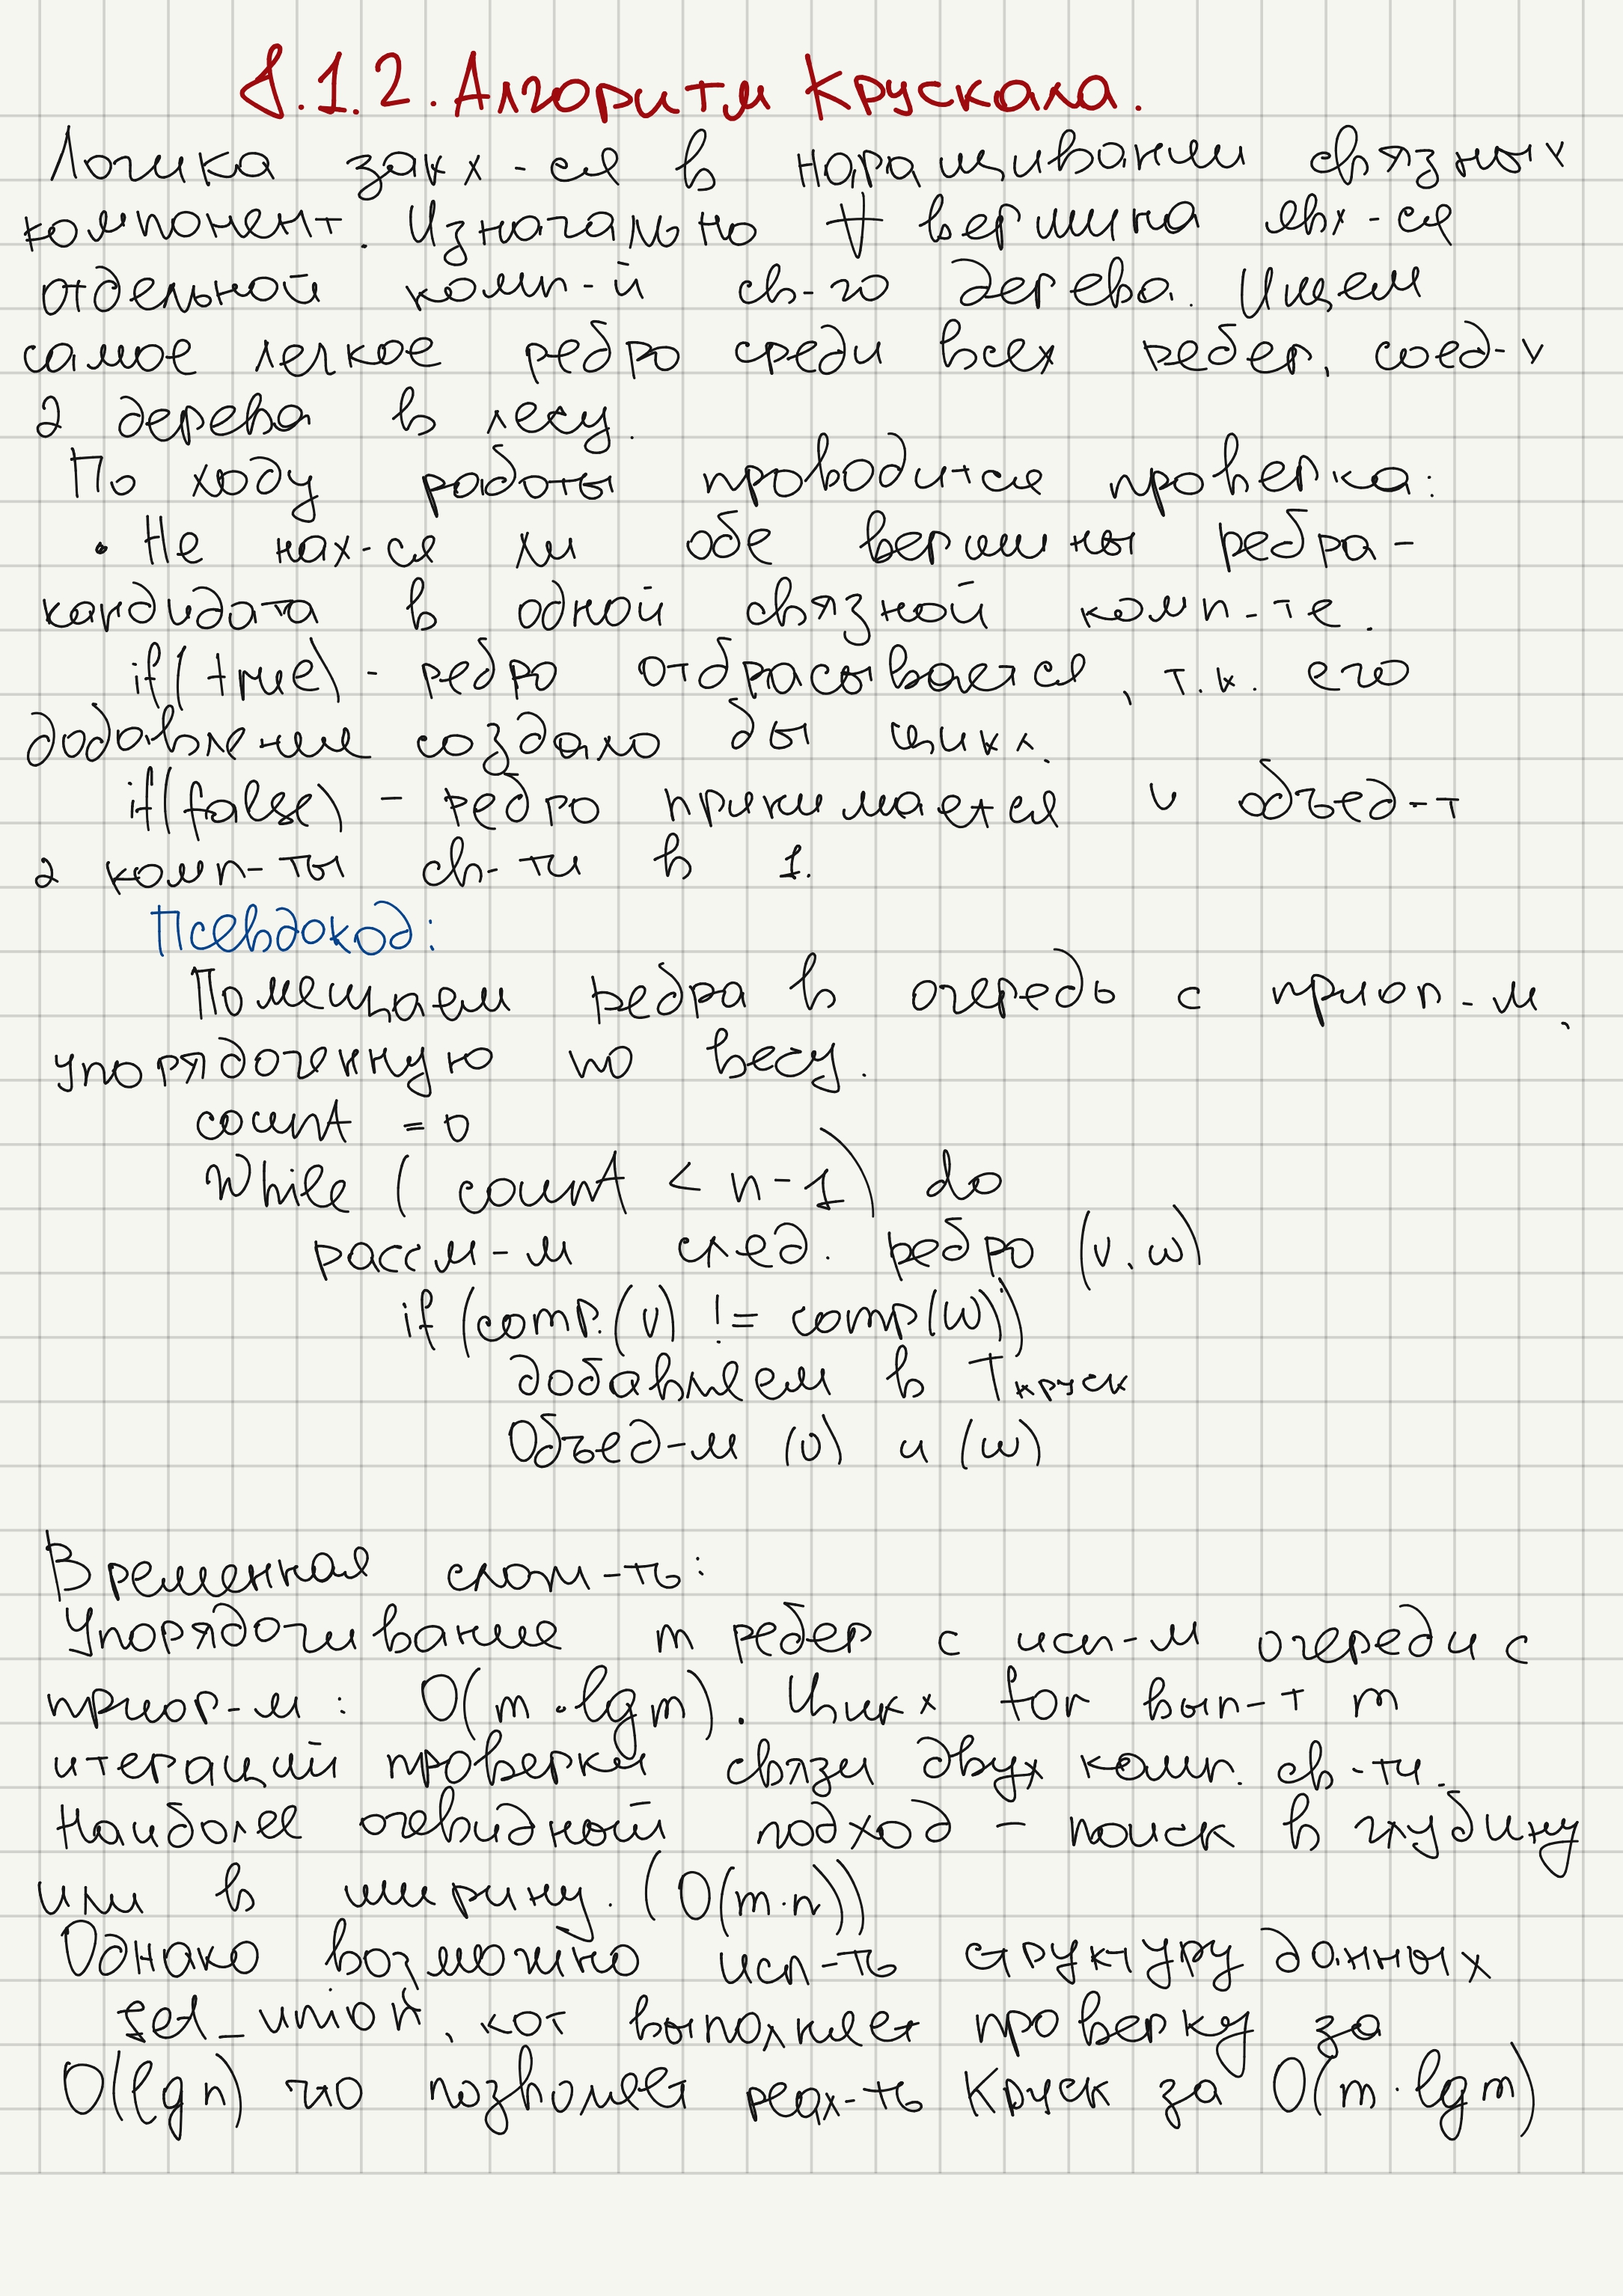 8.1.2. Алгоритм Крускала.
Логика закл-ся в наращивании связных
компонент. Изначально ∀ вершина явл-ся
отдельной комп-й св-го дерева. Ищем
самое легкое ребро среди всех ребер, соед-х
2 дерева в лесу.
По ходу работы проводится проверка:
• Не нах-ся ли обе вершины ребра-
кандидата в одной связной комп-те.
if(true) - ребро отбрасывается, т.к. его
добавление создало бы цикл.
if(false) - ребро принимается и объед-т
2 комп-ты св-ти в 1.
Псевдокод:
Помещаем ребра в очередь с приор-м,
упорядоченную по весу.
count = 0
While (count < n-1) do
рассм-м след. ребро (v,w)
if (comp.(v) != comp(w))
добавляем в Tкруск
Объед-м (v) и (w)
Временная слож-ть:
Упорядочивание m ребер с исп-м очереди с
приор-м: O(m·lgm). Цикл for вып-т m
итераций проверки связи двух комп. св-ти.
Наиболее очевидный подход - поиск в глубину
или в ширину. (O(m·n))
Однако возможно исп-ть структуру данных
set_union, кот выполняет проверку за
O(lgn) что позволяет реал-ть Круск за O(m·lgm)